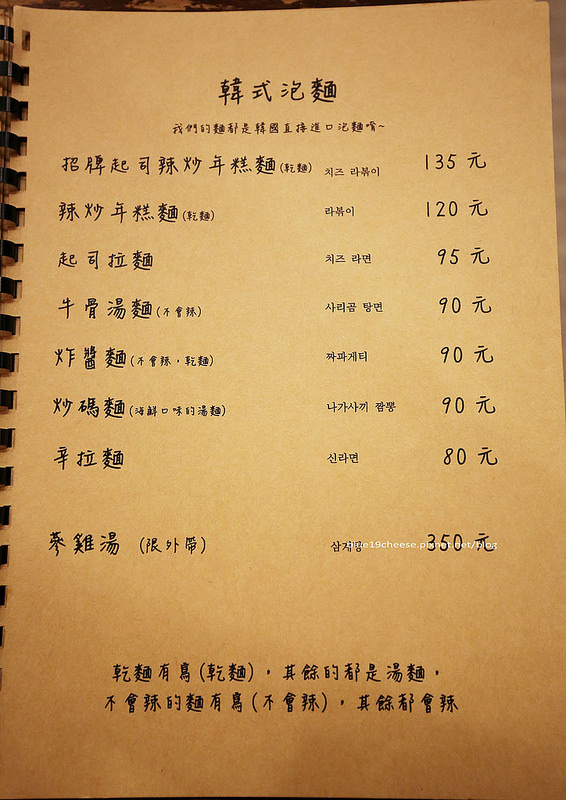 韓式泡麵
我們的麵都是韓國直接進口泡麵唷~
招牌起司辣炒年糕麵(乾麵) 치즈 라볶이 135 元
辣炒年糕麵(乾麵) 라볶이 120 元
起司拉麵 치즈 라면 95 元
牛骨湯麵(不會辣) 사리곰 탕면 90 元
炸醬麵(不會辣，乾麵) 짜파게티 90 元
炒碼麵(海鮮口味的湯麵) 나가사끼 짬뽕 90 元
辛拉麵 신라면 80 元
蔘雞湯 (限外帶) 삼계탕 350 元
19cheese.pixnet.net/blog
乾麵有寫(乾麵)，其餘的都是湯麵，
不會辣的麵有寫(不會辣)，其餘都會辣